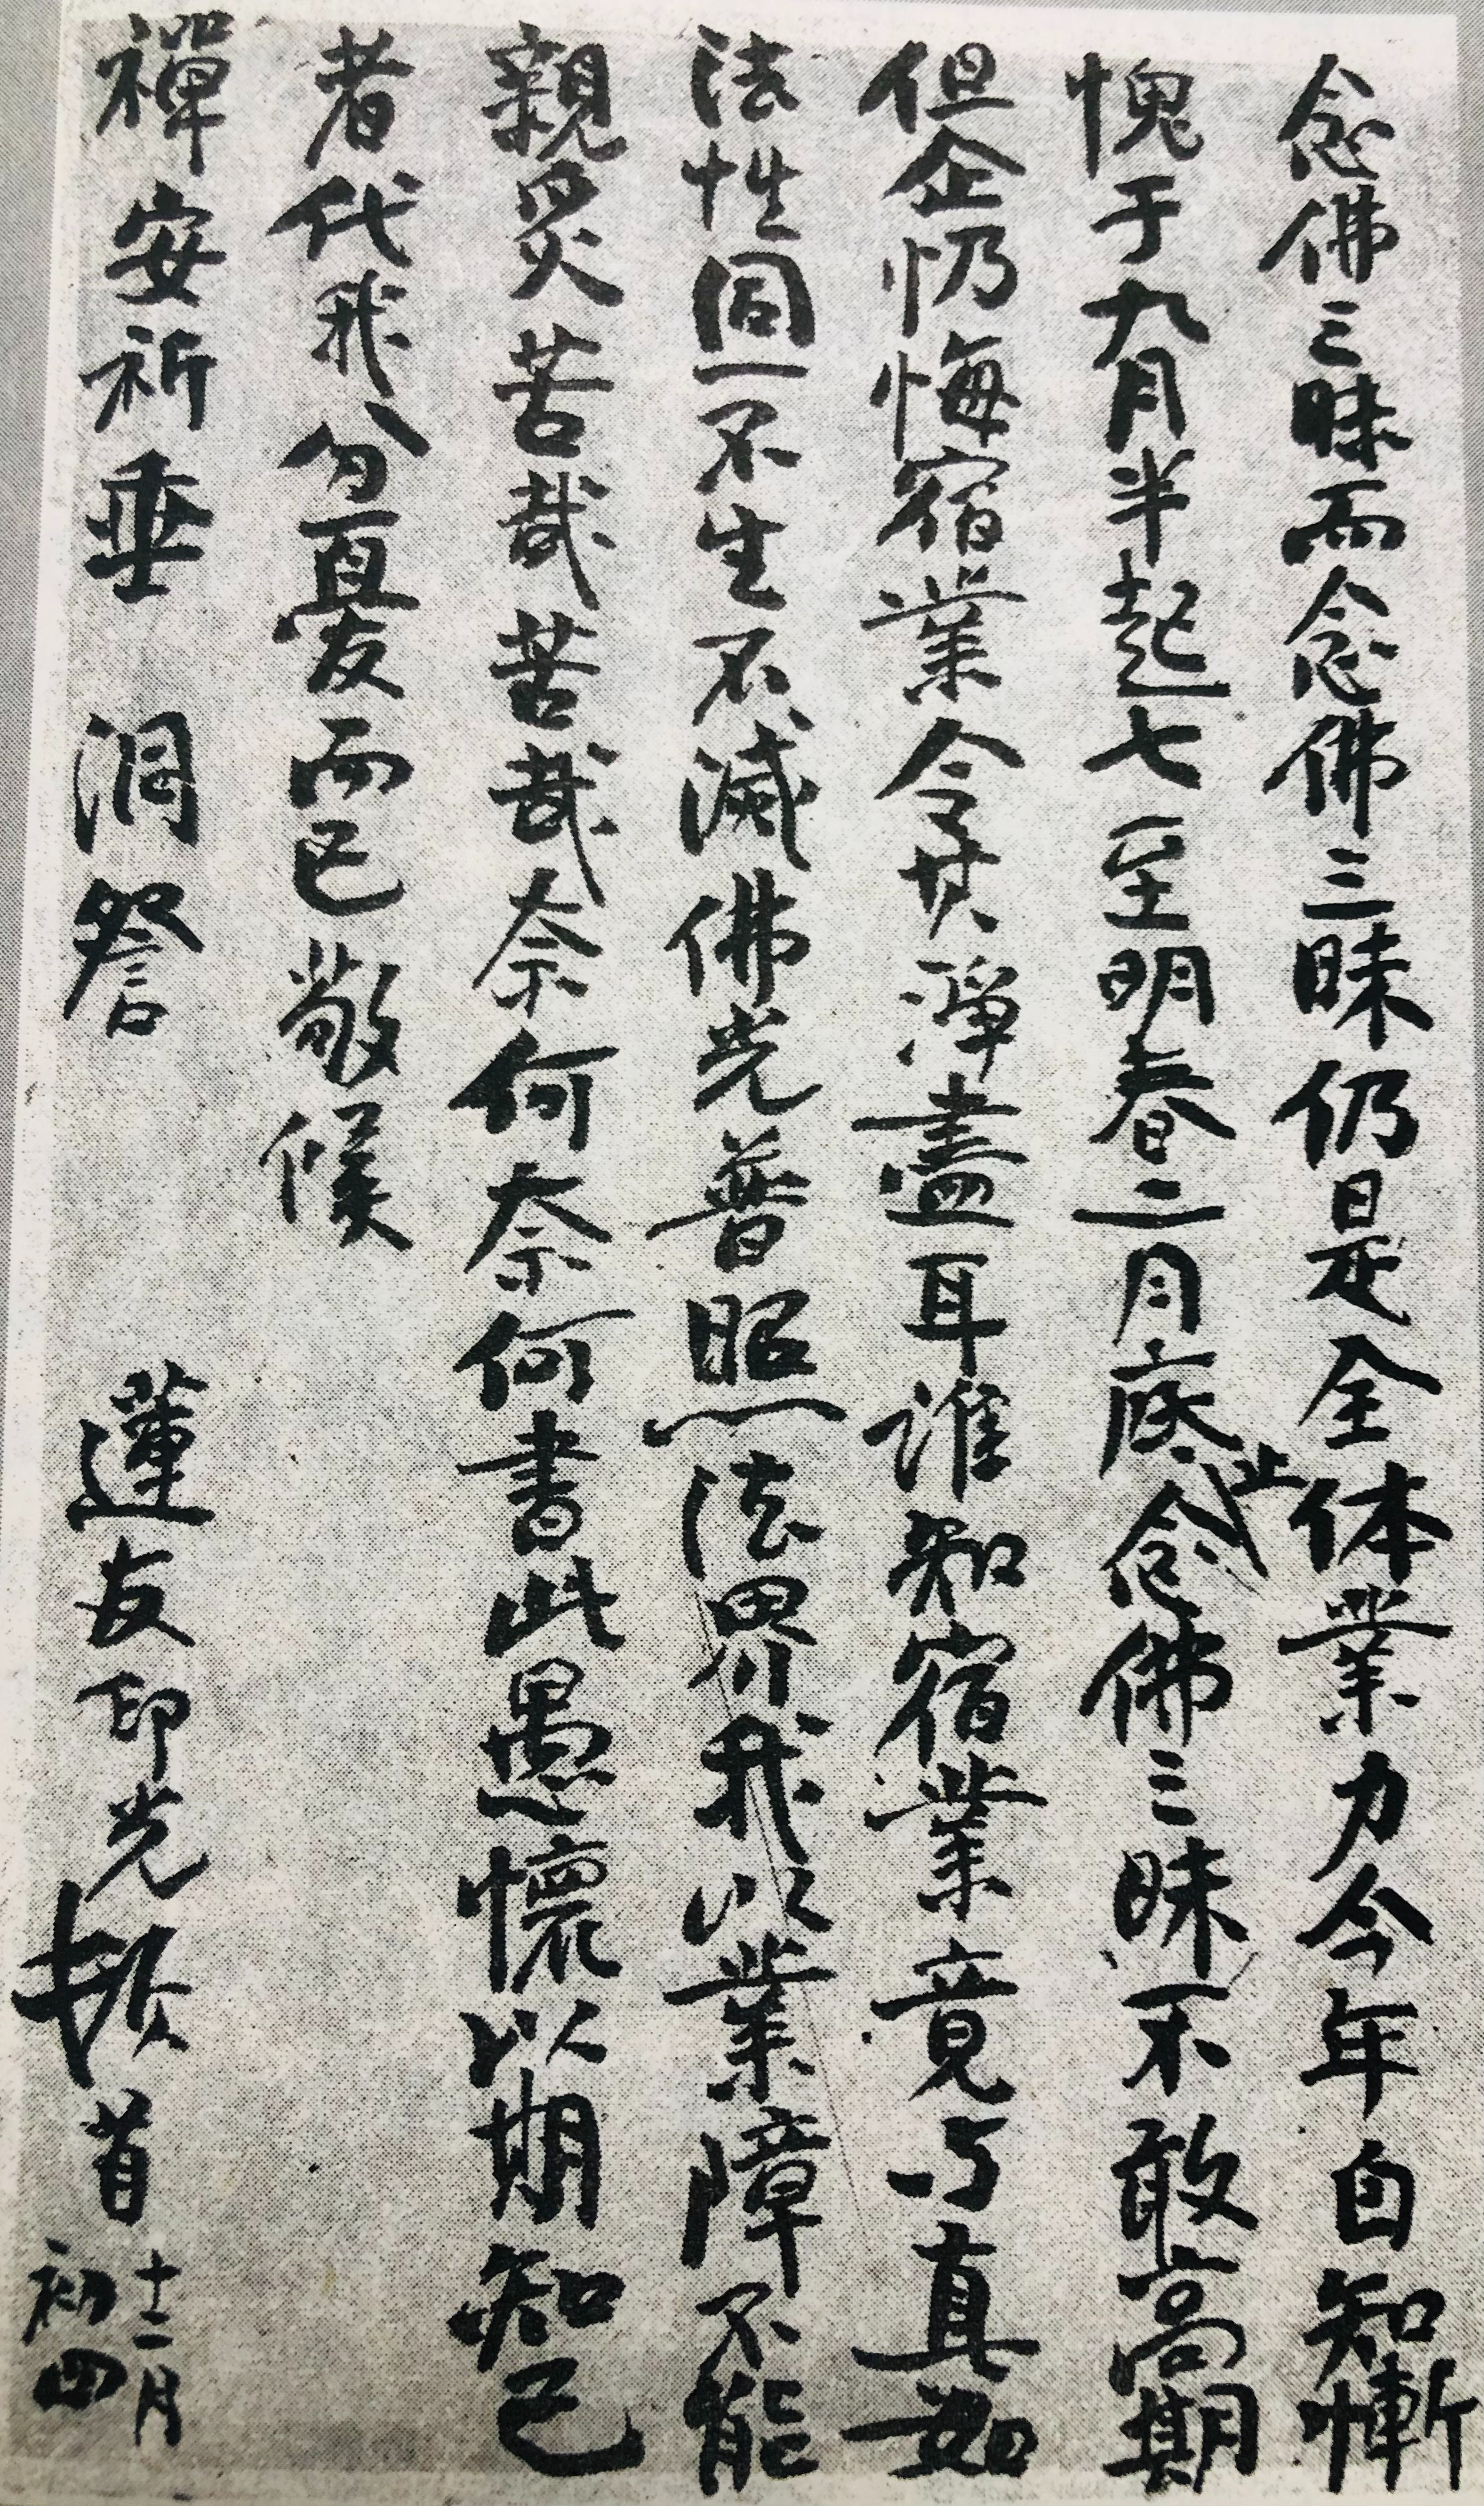 念佛三昧而念佛三昧仍是全体業力今年自知慚
愧于九月半起七至明春二月底止念佛三昧不敢高期
但企忏悔宿業令其淨盡耳誰知宿業竟与真如
法性同一不生不滅佛光普照法界我以業障不能
親炙苦哉苦哉奈何奈何書此愚懷以期知己
者代我分憂而已敬候
禪安祈垂 洞詧 蓮友印光頓首 十二月
初四